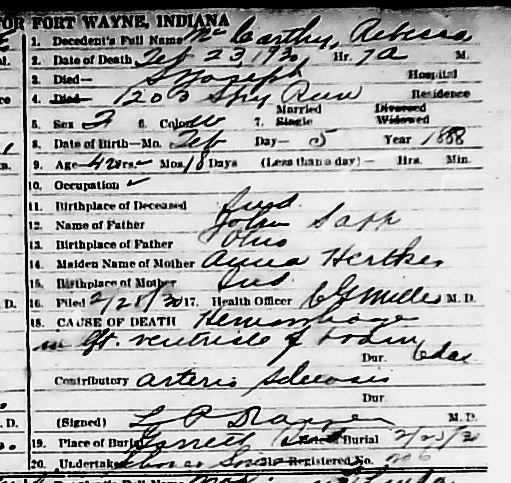 FOR FORT WAYNE, INDIANA
1. Decedent's Full Name Mc Carthy, Rebecca
2. Date of Death Feb 23, 1930 Hr. 7 A M.
3. Died— St Joseph Hospital
4. Died— 1203 Spy Run Residence
5. Sex F 6. Color W 7. Married Single Divorced Widowed
8. Date of Birth—Mo. Feb Day— 5 Year 1888
9. Age— 42 yrs.— Mos. 18 Days (Less than a day)— Hrs. Min.
10. Occupation ✓
11. Birthplace of Deceased Ind.
12. Name of Father John Sapp
13. Birthplace of Father Ohio
14. Maiden Name of Mother Anna
15. Birthplace of Mother Ind.
16. Filed 2/28/30 17. Health Officer M. D.
18. CAUSE OF DEATH Hemorrhage
in ventricle of brain
Dur.
Contributory arterio sclerosis
Dur
(Signed) M. D.
19. Place of Burial Garrett Ind Burial
20. Undertaker Registered No. 206